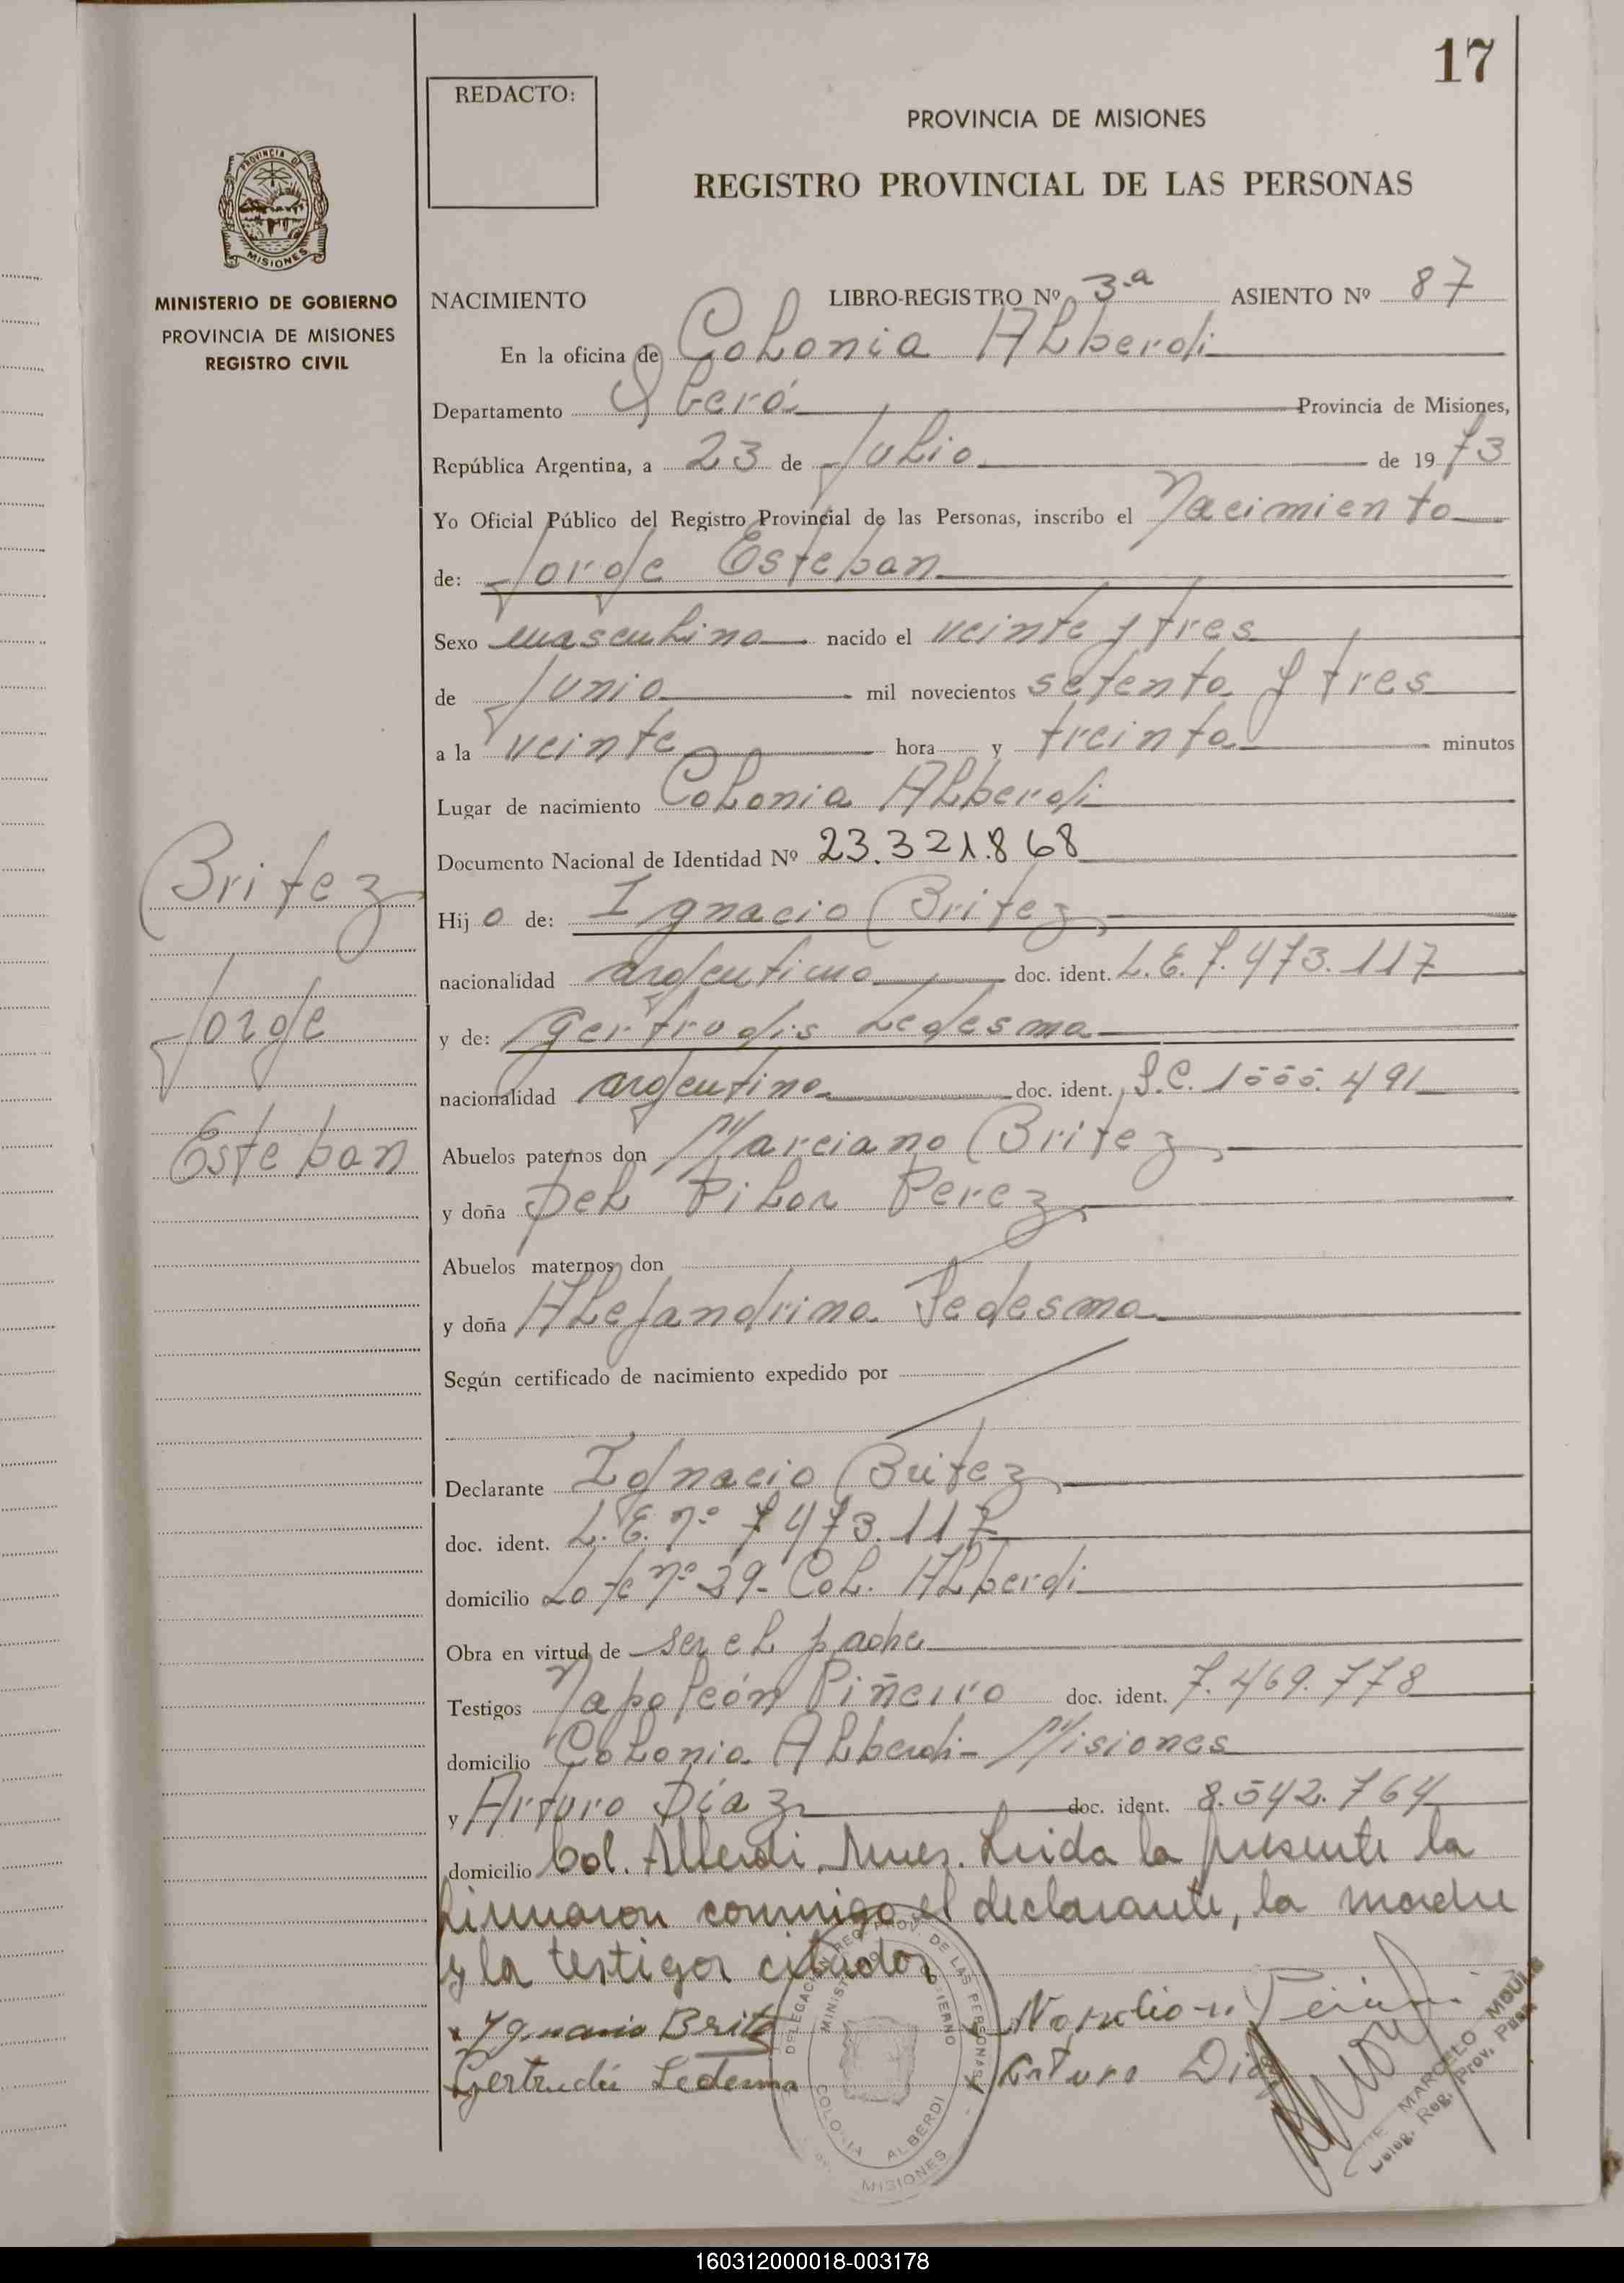 17
REDACTO:
PROVINCIA DE MISIONES
REGISTRO PROVINCIAL DE LAS PERSONAS
PROVINCIA DE
MISIONES
MINISTERIO DE GOBIERNO
PROVINCIA DE MISIONES
REGISTRO CIVIL
NACIMIENTO LIBRO-REGISTRO Nº 3.a ASIENTO Nº 87
En la oficina de Colonia Alberdi
Departamento Oberá Provincia de Misiones,
República Argentina, a 23 de Julio de 1973
Yo Oficial Público del Registro Provincial de las Personas, inscribo el Nacimiento
de: Jorge Esteban
Sexo masculino nacido el veinte y tres
de Junio mil novecientos setenta y tres
a la veinte hora y treinta minutos
Lugar de nacimiento Colonia Alberdi
Documento Nacional de Identidad Nº 23.321.868
Britez
Hijo de: Ignacio Britez
nacionalidad argentino doc. ident. L.E. 7.473.117
Jorge
y de: Gertrudis Ledesma
nacionalidad argentina doc. ident. 491
Esteban
Abuelos paternos don Marciano Britez
y doña Del Pilar Perez
Abuelos maternos don
y doña Alejandrina Ledesma
Según certificado de nacimiento expedido por
Declarante Ignacio Britez
doc. ident. L.E. nº 7473.117
domicilio Lote nº 29- Col. Alberdi
Obra en virtud de ser el padre
Testigos Napoleón Piñeiro doc. ident. 7.469.778
domicilio Colonia Alberdi- Misiones
y Arturo Díaz doc. ident. 8.542.764
domicilio Col. Alberdi, Mnes. Leida la presente la
firmaron conmigo el declarante, la madre
y los testigos citados
Ygnacio Britez
Gertrudis Ledesma
Arturo Diaz
DELEGACION REG. PROV. DE LAS PERSONAS
MINISTERIO GOBIERNO
COLONIA ALBERDI
MISIONES
MARCELO
Deleg. Reg. Prov. Pers.
160312000018-003178